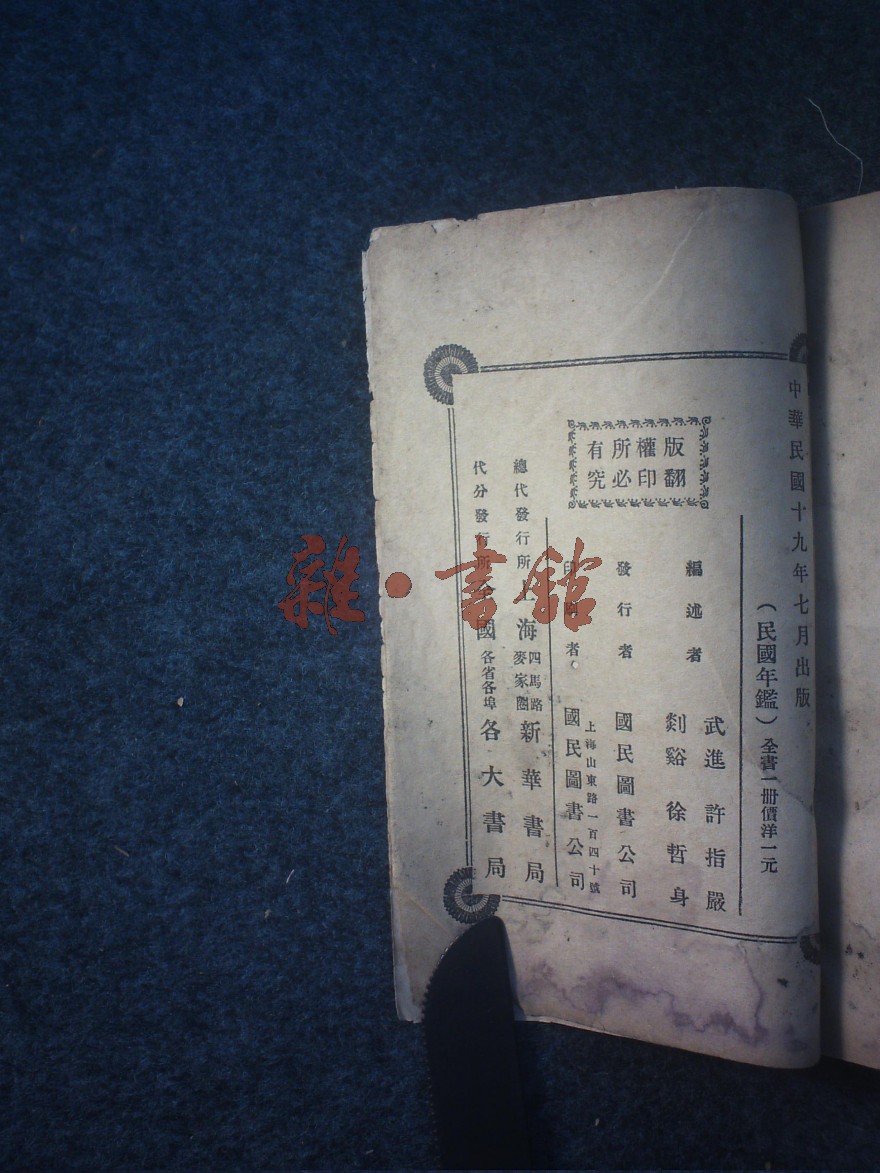 中華民國十九年七月出版
（民國年鑑）全書一册價洋一元
版權所有
翻印必究
編述者
武進 許指嚴
剡谿 徐哲身
發行者 國民圖書公司
印刷者 國民圖書公司
上海山東路一百四十號
總代發行所 上海 四馬路麥家圈 新華書局
代分發行所 全國 各省各埠 各大書局
雜·書館